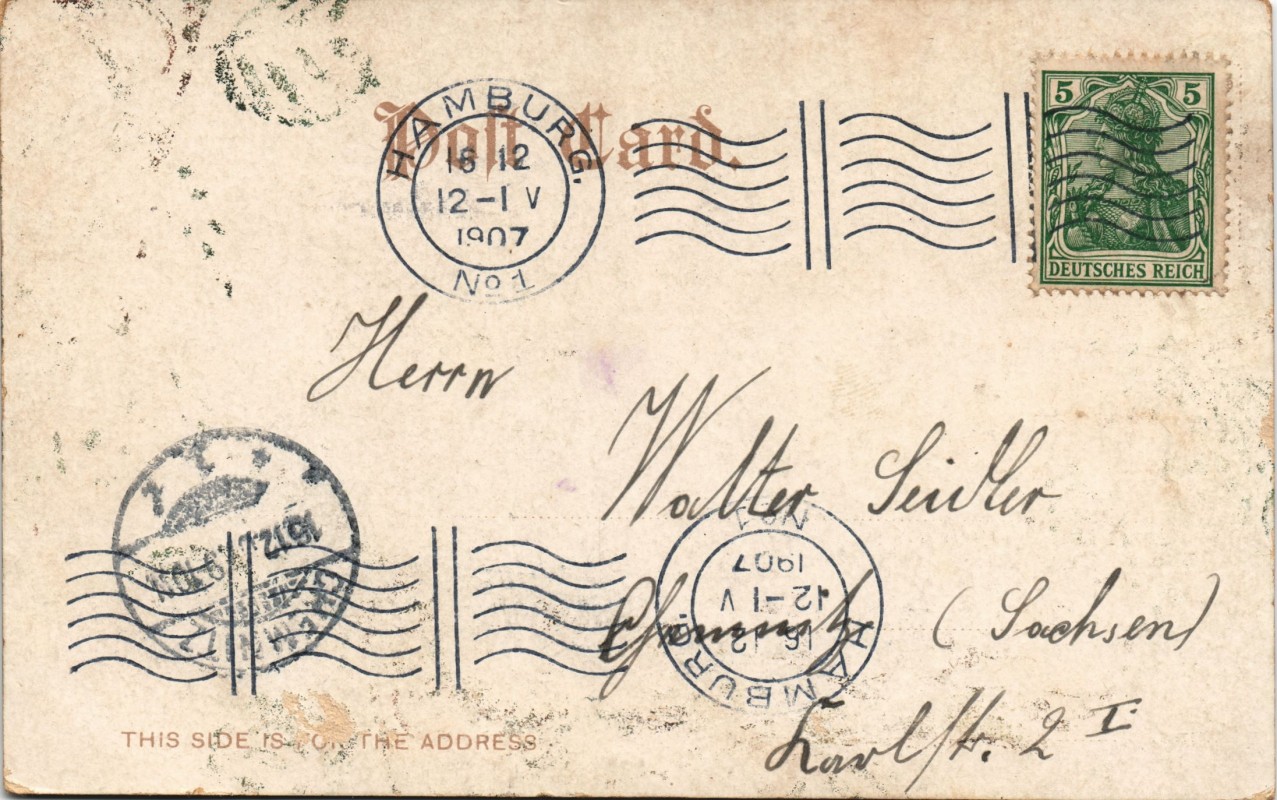 Post Card.
HAMBURG.
16 12
12-1 V
1907
No 1
5 5
DEUTSCHES REICH
Herrn
Walter Seidler
Chemnitz (Sachsen)
Karlstr. 2 I
HAMBURG.
16 12
12-1 V
1907
No 1
CHEMNITZ
16.12.
THIS SIDE IS FOR THE ADDRESS